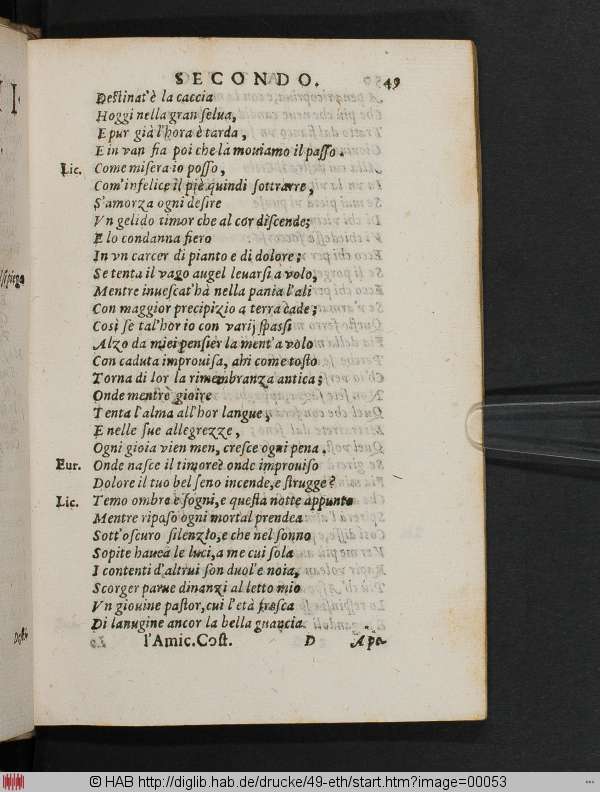 SECONDO. 49
Destinat'è la caccia
Hoggi nella gran selua,
E pur già l'hora è tarda,
E in van fia poi che là mouiamo il passo.
Lic. Come misera io posso,
Com'infelice il piè quindi sottrarre,
S'amorza ogni desire
Vn gelido timor che al cor discende;
E lo condanna fiero
In vn carcer di pianto e di dolore;
Se tenta il vago augel leuarsi à volo,
Mentre inuescat'hà nella pania l'ali
Con maggior precipizio a terra cade;
Così se tal'hor io con varij spassi
Alzo da miei pensier la ment'a volo
Con caduta improuisa, ahi come tosto
Torna di lor la rimembranza antica;
Onde mentrè gioire
Tenta l'alma all'hor langue,
E nelle sue allegrezze,
Ogni gioia vien men, cresce ogni pena.
Eur. Onde nasce il timoreè onde improuiso
Dolore il tuo bel seno incende, e strugge?
Lic. Temo ombre e sogni, e questa notte appunto
Mentre riposo ogni mortal prendea
Sott'oscuro silenzio, e che nel sonno
Sopite hauea le luci, a me cui sola
I contenti d'altrui son duol'e noia,
Scorger parue dinanzi al letto mio
Vn giouine pastor, cui l'età fresca
Di lanugine ancor la bella guancia
l'Amic. Cost. D Apa
© HAB http://diglib.hab.de/drucke/49-eth/start.htm?image=00053